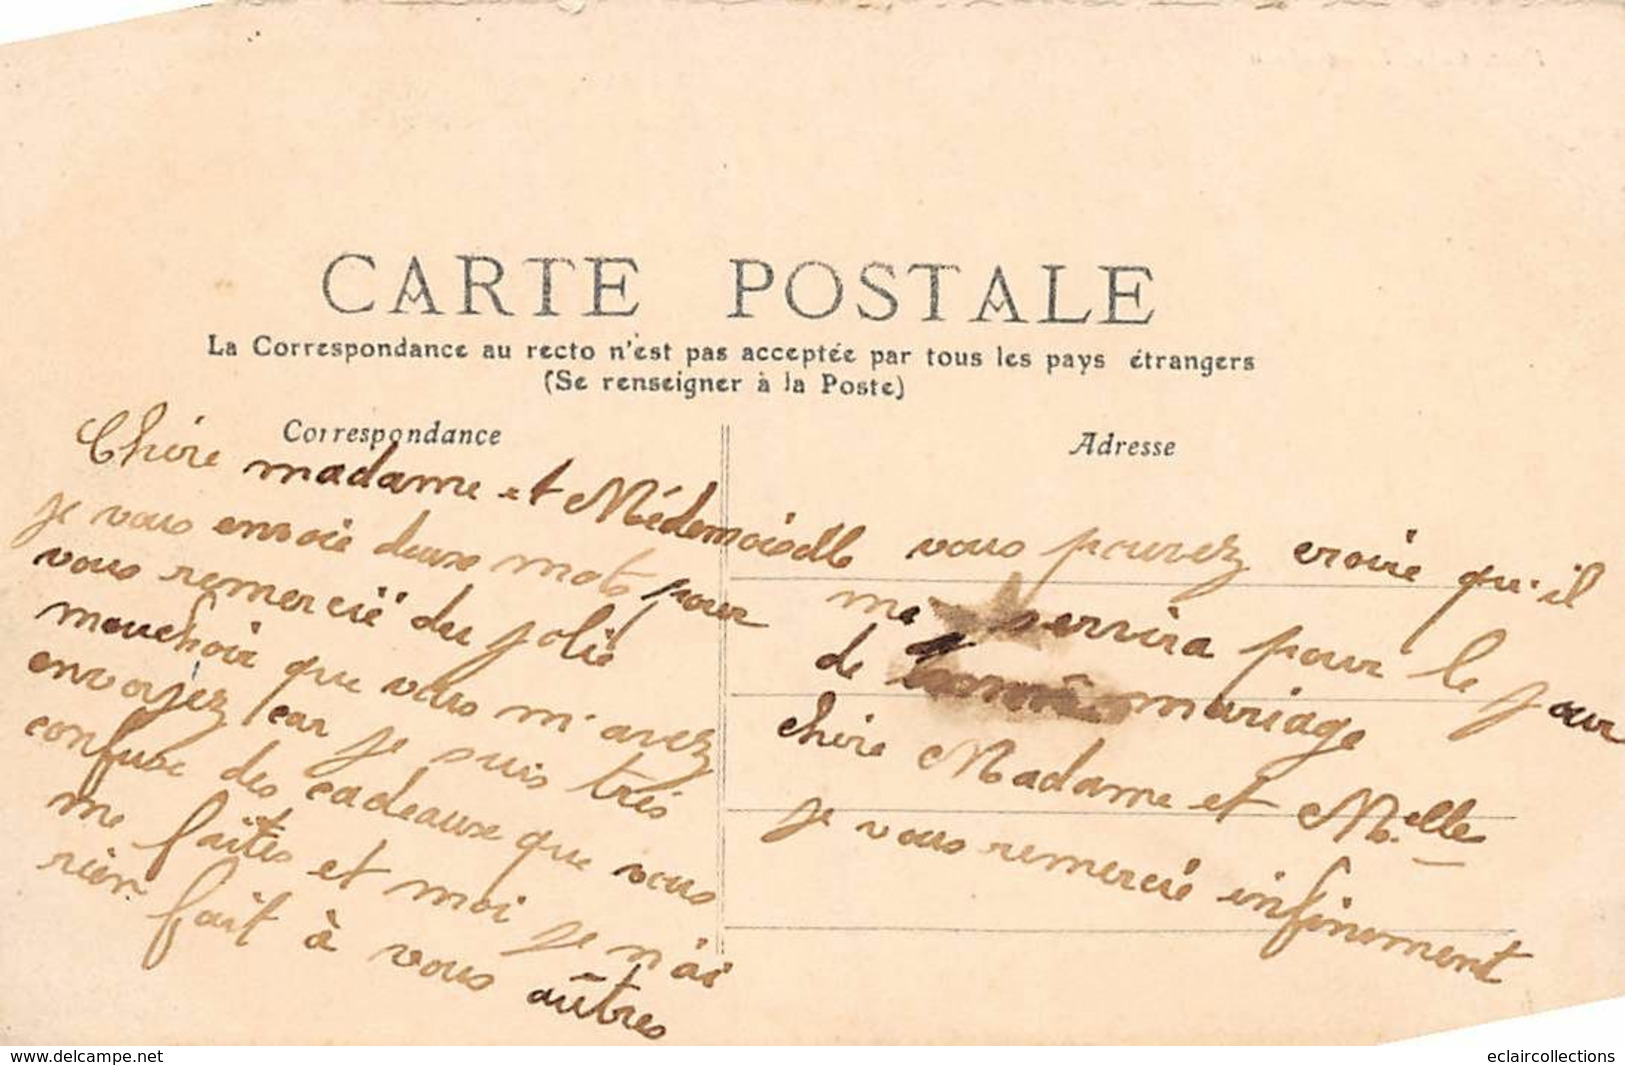 CARTE POSTALE
La Correspondance au recto n'est pas acceptée par tous les pays étrangers
(Se renseigner à la Poste)
Correspondance
Chère madame et Médemoisèlle
je vous envoie deux mots pour
vous remercié du jolie
mouchoir que vous m'avez
envoyez car je suis très
confuse des cadeaux que vous
me faîtes et moi je n'ai
rien fait à vous aûtres
Adresse
vous pouvez croire qu'il
me servira pour le jour
de mariage
chère Madame et Melle
je vous remercié infiniment
www.delcampe.net
eclaircollections